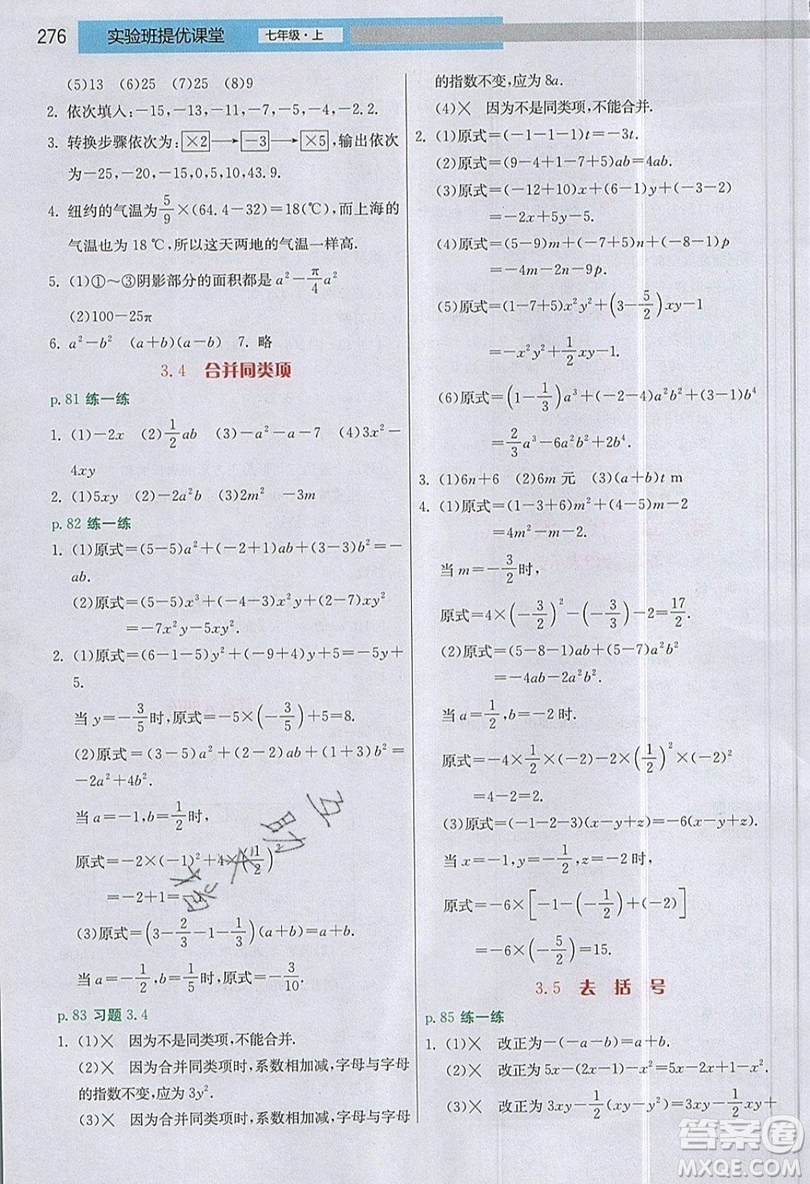 276 实验班提优课堂 七年级·上
(5)13 (6)25 (7)25 (8)9
2. 依次填入:-15,-13,-11,-5,-4,-2.2.
3. 转换步骤依次为:×2→-3→×5,输出依次
为-25,-20,-15,0,5,10,43.9.
4. 纽约的气温为5/9×(64.4-32)=18(℃),而上海的
气温也为18 ℃,所以这天两地的气温一样高.
5. (1)①~③阴影部分的面积都是a²-π/4a²
(2)100-25π
6. a²-b² (a+b)(a-b) 7. 略
3.4 合并同类项
p.81 练一练
1. (1)-2x (2)1/2ab (3)-a²-a-7 (4)3x²-
4xy
2. (1)5xy (2)-2a²b (3)2m² -3m
p.82 练一练
1. (1)原式=(5-5)a²+(-2+1)ab+(3-3)b²=-
ab.
(2)原式=(5-5)x³+(-3-4)x²y+(2-7)xy²
=-7x²y-5xy².
2. (1)原式=(6-1-5)y²+(-9+4)y+5=-5y+
5.
当y=-3/5时,原式=-5×(-3/5)+5=8.
(2)原式=(3-5)a²+(2-2)ab+(1+3)b²=
-2a²+4b².
当a=-1,b=1/2时,
原式=-2×(-1)²+4×(1/2)²
=-2+1=-1.
(3)原式=(3-2/3-1-1/3)(a+b)=a+b.
当a=-1/2,b=1/5时,原式=-3/10.
p.83 习题3.4
1. (1)× 因为不是同类项,不能合并.
(2)× 因为合并同类项时,系数相加减,字母与字母
的指数不变,应为3y².
(3)× 因为合并同类项时,系数相加减,字母与字母
的指数不变,应为8a.
(4)× 因为不是同类项,不能合并.
2. (1)原式=(-1-1-1)t=-3t.
(2)原式=(9-4+1-7+5)ab=4ab.
(3)原式=(6-2-6)x+(-10+11)y²+(5-1)
=-2x+y²+4.
(4)原式=(5-9)m+(-3+1)n+(8+1)p
=-4m-2n+9p.
(5)原式=(-7+5+1)x²y²+(3-5/2)xy-1
=-x²y²+1/2xy-1.
(6)原式=(1-1/3)a³+(-2+4-2)a²b²+(1-1/2)b⁴
=2/3a³+1/2b⁴.
3. (1)6n+6 (2)6m元 (3)(a+b)t m
4. (1)原式=(1-3+6)m²+(4-5)m-2
=4m²-m-2.
当m=-3/2时,
原式=4×(-3/2)²-(-3/2)-2=17/2.
(2)原式=(5-8-1)ab+(-5+4-1)a²b²
=-4ab-2a²b².
当a=1/2,b=-2时,
原式=-4×1/2×(-2)-2×(1/2)²×(-2)²
=4-2=2.
(3)原式=(-1-2-3)(x-y+z)=-6(x-y+z).
当x=-1,y=-1/2,z=-2时,
原式=-6×[-1-(-1/2)+(-2)]
=-6×(-5/2)=15.
3.5 去括号
p.85 练一练
1. (1)× 改正为-(-a-b)=a+b.
(2)× 改正为5x-(2x-1)-x²=5x-2x+1-x².
(3)× 改正为3xy-1/2(xy-y²)=3xy-1/2xy+
互助文档
答案圈
MXQE.COM